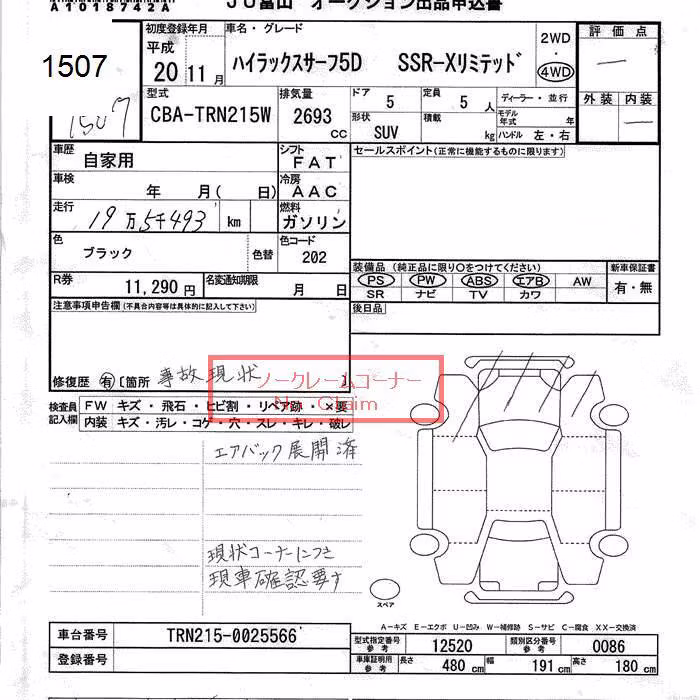 A1018742A JU富山 オークション出品申込書
1507
1507
初度登録年月 平成 20 11月
車名・グレード ハイラックスサーフ5D SSR-Xリミテッド
2WD・4WD
評価点 —
外装 内装 —
型式 CBA-TRN215W
排気量 2693 CC
ドア 5 定員 5 人 ディーラー・並行
形状 SUV 積載 kg モデル年式 年 ハンドル 左・右
車歴 自家用
シフト FAT
セールスポイント(正常に機能するものに限ります)
車検 年 月( 日)
冷房 AAC
走行 19万5千493 km
燃料 ガソリン
色 ブラック 色替
色コード 202
R券 11,290円 名変通知期限 月 日
装備品(純正品に限り○をつけてください) 新車保証書
PS PW ABS エアB AW 有・無
SR ナビ TV カワ
後日品
注意事項申告欄(不具合内容等は具体的に記入して下さい)
修復歴 有 〔箇所 事故現状 〕
ノークレームコーナー
No Claim
検査員記入欄 FW キズ・飛石・ヒビ割・リペア跡・×要
内装 キズ・汚レ・コゲ・穴・スレ・キレ・破レ
エアバック展開済
現状コーナーにつき
現車確認要す
スペア
A-キズ E-エクボ U-凹み W-補修跡 S-サビ C-腐食 XX-交換済
車台番号 TRN215-0025566
登録番号
型式指定番号 参考 12520 類別区分番号 参考 0086
車庫証明用 参考 長さ 480 cm 幅 191 cm 高さ 180 cm